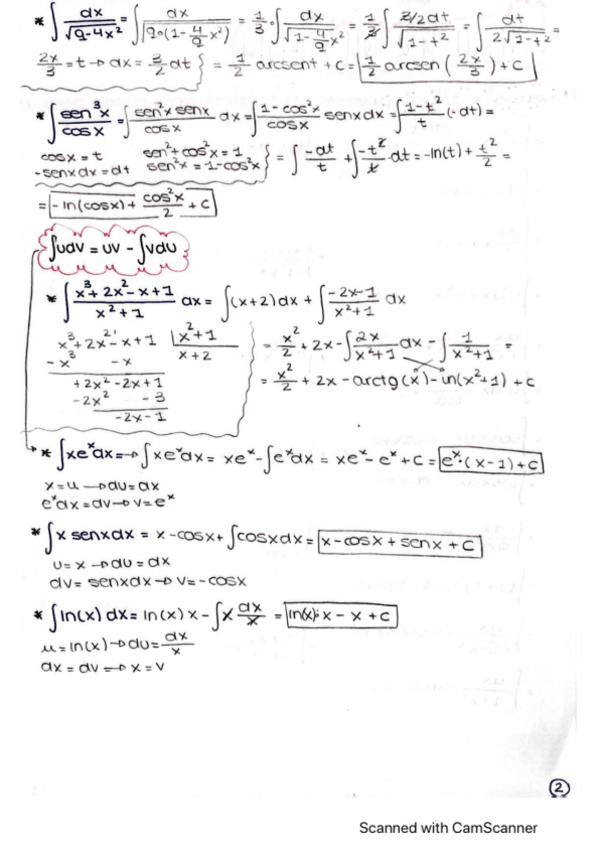 * ∫ dx/√(9-4x²) = ∫ dx/√(9·(1-4/9 x²)) = 1/3 · ∫ dx/√(1-4/9 x²) = 1/3 ∫ 3/2 dt/√(1-t²) = ∫ dt/2√(1-t²) =
2x/3 = t → dx = 3/2 dt } = 1/2 arcsent + c = 1/2 arcsen (2x/3) + c
* ∫ sen³x/cosx = ∫ sen²x senx/cosx dx = ∫ 1-cos²x/cosx senxdx = ∫ 1-t²/t (-dt) =
cosx = t sen²+cos²x = 1
-senxdx = dt sen²x = 1-cos²x } = ∫ -dt/t + ∫ -t²/t · dt = -ln(t) + t²/2 =
= -ln(cosx) + cos²x/2 + c
∫udv = uv - ∫vdu
* ∫ x³+2x²-x+1/x²+1 dx = ∫(x+2)dx + ∫ -2x-1/x²+1 dx
x³+2x²-x+1 | x²+1
-x³ -x x+2
+2x²-2x+1
-2x² -3
-2x-1
= x²/2 + 2x - ∫ 2x/x²+1 dx - ∫ 1/x²+1 =
= x²/2 + 2x - arctg(x) - ln(x²+1) + c
* ∫xeˣdx = → ∫xeˣdx = xeˣ - ∫eˣdx = xeˣ - eˣ + c = eˣ·(x-1)+c
x = u → du = dx
eˣdx = dv → v = eˣ
* ∫x senxdx = x-cosx + ∫cosxdx = x-cosx + senx + c
u = x → du = dx
dv = senxdx → v = -cosx
* ∫ln(x) dx = ln(x) x - ∫x dx/x = ln(x)·x - x + c
u = ln(x) → du = dx/x
dx = dv → x = v
2
Scanned with CamScanner